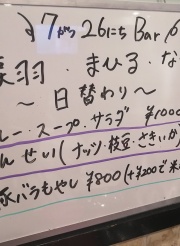 7がつ26にち Bar
羽・まひる・な
〜日替わり〜
レー・スープ・サラダ ¥1000
んせい(ナッツ・枝豆・さきいか
豚バラもやし ¥800(+¥200で米